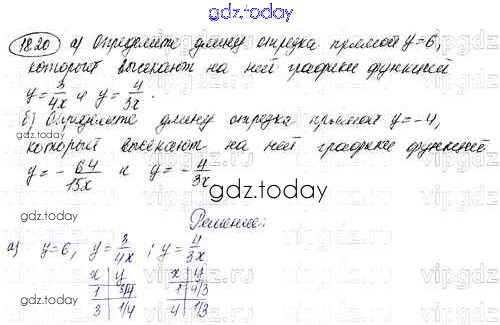 gdz.today
18.20 а) Определите длину отрезка прямой y=6,
который высекают на ней графики функций
y=3/4x и y=4/3x.
б) Определите длину отрезка прямой y=-4,
который высекают на ней графики функций
y=-64/15x и y=-4/3x
gdz.today
Решение:
а) y=6, y=3/4x; y=4/3x
x | y x | y
1 | 3/4 1 | 4/3
3 | 1/4 4 | 1/3
gdz.today